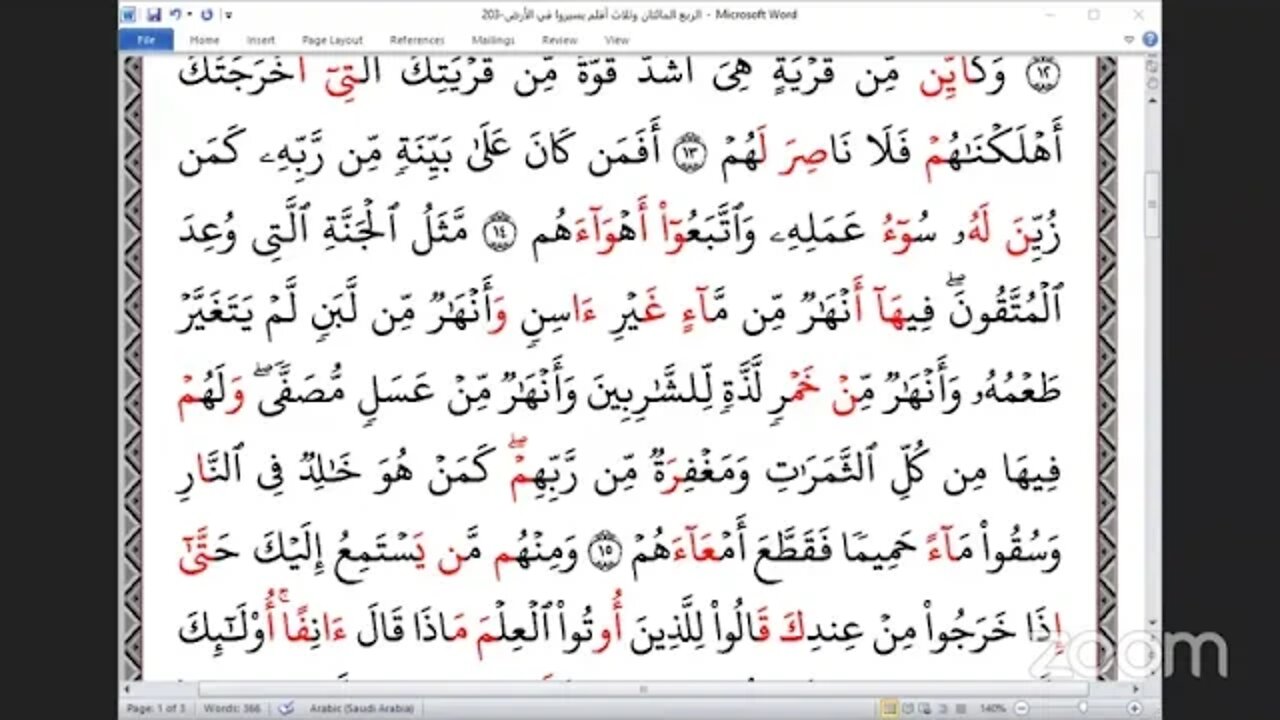 الربع المائتان وثلاث أفلم يسيروا في الأرض-203 - Microsoft Word
File Home Insert Page Layout References Mailings Review View
١٢ وَكَأَيِّن مِّن قَرۡيَةٍ هِيَ أَشَدُّ قُوَّةٗ مِّن قَرۡيَتِكَ ٱلَّتِيٓ أَخۡرَجَتۡكَ
أَهۡلَكۡنَٰهُمۡ فَلَا نَاصِرَ لَهُمۡ ١٣ أَفَمَن كَانَ عَلَىٰ بَيِّنَةٖ مِّن رَّبِّهِۦ كَمَن
زُيِّنَ لَهُۥ سُوٓءُ عَمَلِهِۦ وَٱتَّبَعُوٓاْ أَهۡوَآءَهُم ١٤ مَّثَلُ ٱلۡجَنَّةِ ٱلَّتِي وُعِدَ
ٱلۡمُتَّقُونَۖ فِيهَآ أَنۡهَٰرٞ مِّن مَّآءٍ غَيۡرِ ءَاسِنٖ وَأَنۡهَٰرٞ مِّن لَّبَنٖ لَّمۡ يَتَغَيَّرۡ
طَعۡمُهُۥ وَأَنۡهَٰرٞ مِّنۡ خَمۡرٖ لَّذَّةٖ لِّلشَّٰرِبِينَ وَأَنۡهَٰرٞ مِّنۡ عَسَلٖ مُّصَفّٗىۖ وَلَهُمۡ
فِيهَا مِن كُلِّ ٱلثَّمَرَٰتِ وَمَغۡفِرَةٞ مِّن رَّبِّهِمۡۖ كَمَنۡ هُوَ خَٰلِدٞ فِي ٱلنَّارِ
وَسُقُواْ مَآءً حَمِيمٗا فَقَطَّعَ أَمۡعَآءَهُمۡ ١٥ وَمِنۡهُم مَّن يَسۡتَمِعُ إِلَيۡكَ حَتَّىٰٓ
إِذَا خَرَجُواْ مِنۡ عِندِكَ قَالُواْ لِلَّذِينَ أُوتُواْ ٱلۡعِلۡمَ مَاذَا قَالَ ءَانِفًاۚ أُوْلَٰٓئِكَ
zoom
Page: 1 of 3 Words: 366 Arabic (Saudi Arabia) 140%